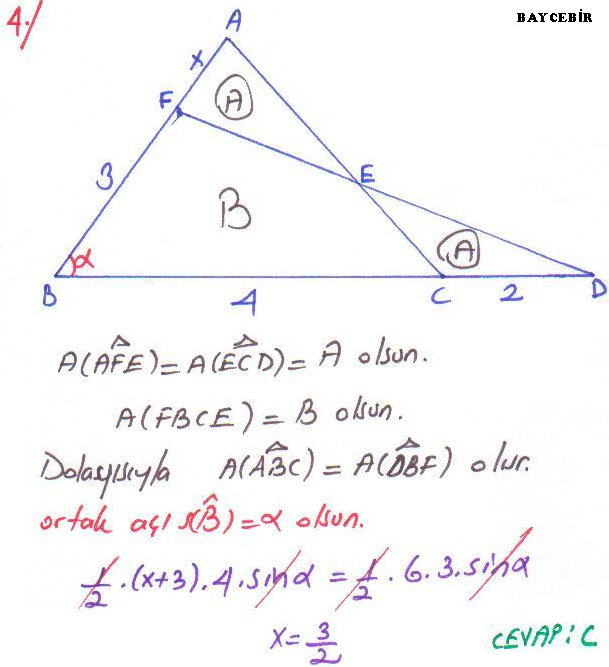 4./
BAYCEBİR
A
x
A
F
E
3
B
A
α
B
4
C
2
D
A(AF̂E) = A(EĈD) = A olsun.
A(FBCE) = B olsun.
Dolayısıyla A(AB̂C) = A(DB̂F) olur.
ortak açı s(B̂) = α olsun.
1/2 . (x+3) . 4 . sinα = 1/2 . 6 . 3 . sinα
x = 3/2
CEVAP : C